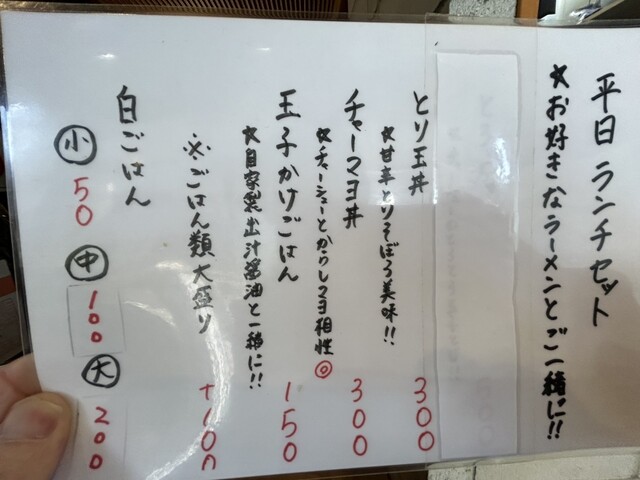 平日 ランチセット
☆お好きなラーメンとご一緒に!!
とり玉丼 300
☆甘辛とりそぼろ美味!!
チャーマヨ丼 300
☆チャーシューとからしマヨ相性◎
玉子かけごはん 150
☆自家製出汁醤油と一緒に!!
※ごはん類大盛り +100
白ごはん
小 50 中 100 大 200